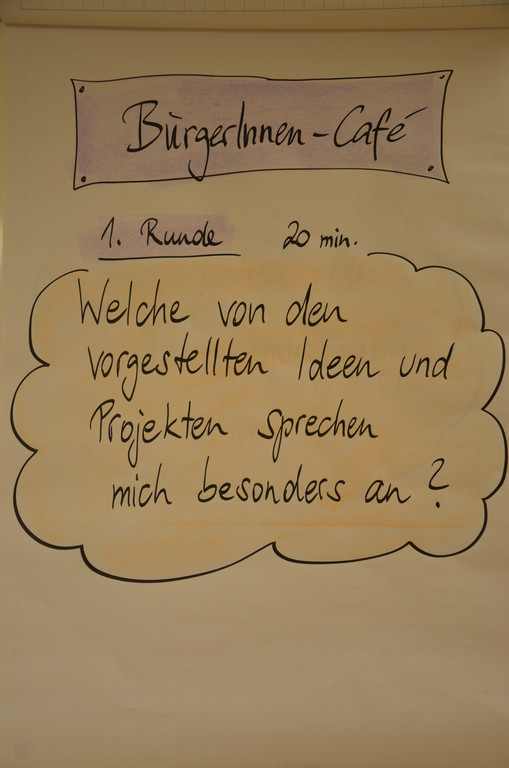 BürgerInnen-Café
1. Runde 20 min.
Welche von den
vorgestellten Ideen und
Projekten sprechen
mich besonders an?